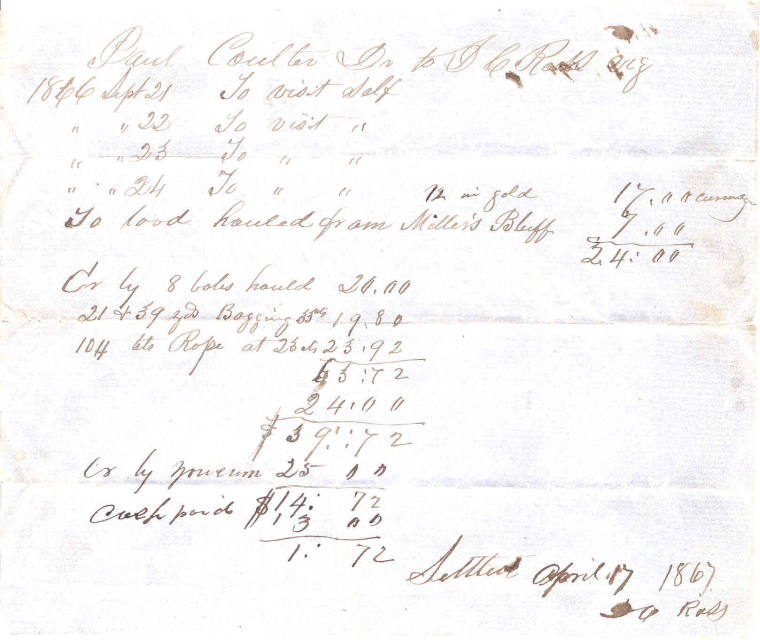 Paul Coulter Dr to J C Ross
1866 Sept 21 To visit Self
" " 22 To visit "
" " 23 To " "
" " 24 To " " 12 in gold 17.00 currency
To load hauled from Miller's Bluff 7.00
24:00
Cr by 8 bales hauld 20.00
21 & 39 yds Bagging 33cts 19.80
104 lbs Rope at 23 cts 23.92
63:72
24:00
$39:72
Cr by 25 00
$14:72
cash paid 13 00
1:72
Settled April 17 1867
J C Ross